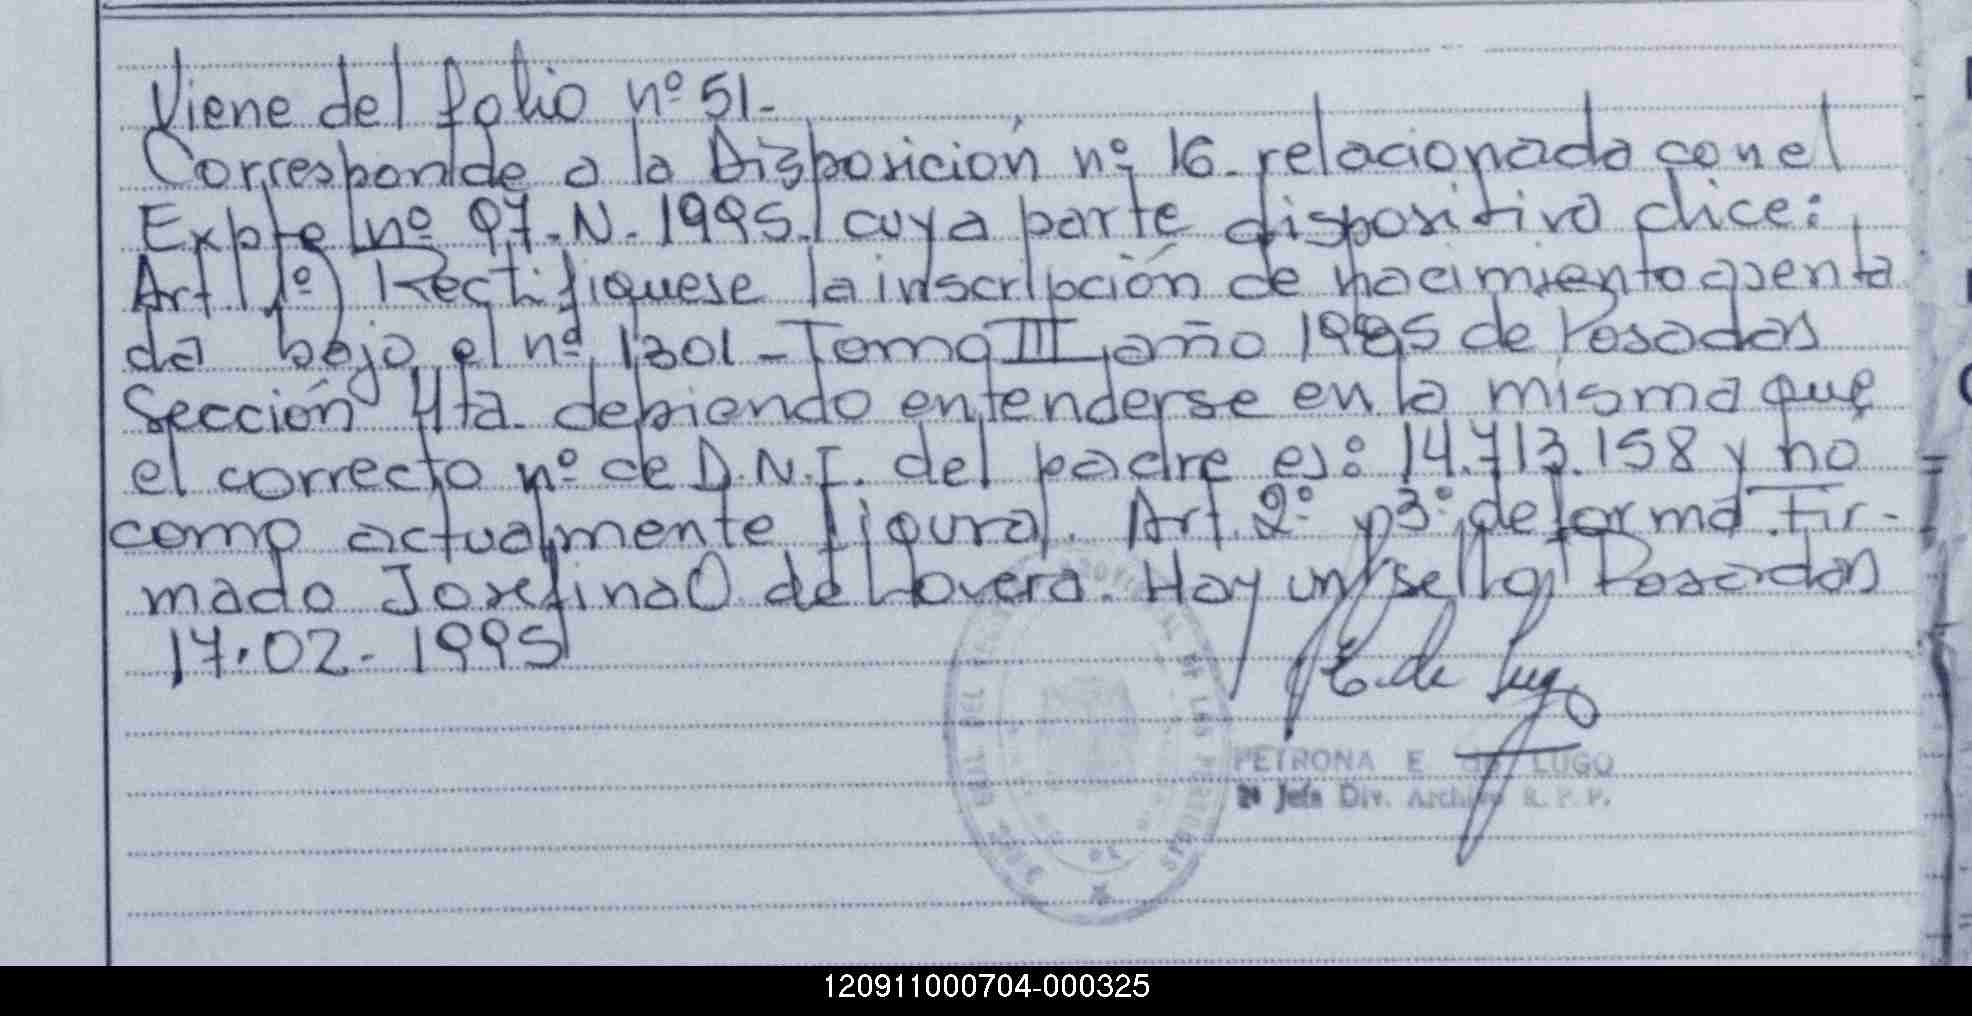 Viene del folio nº 51-
Corresponde a la Disposición nº 16. relacionada con el
Expte nº 97-N-1995. cuya parte dispositiva dice:
Art 1º) Rectifiquese la inscripción de nacimiento asenta
da bajo el nº 1301-Tomo III año 1985 de Posadas
Sección 4ta. debiendo entenderse en la misma que
el correcto nº de D.N.I. del padre es: 14.713.158 y no
como actualmente figura. Art. 2º y 3º de forma Fir-
mado Josefina O. de Lovera. Hay un sello Posadas
17.02-1995
E. de Lugo
PETRONA E. de LUGO
2º Jefa Div. Archivo R.P.P.
120911000704-000325